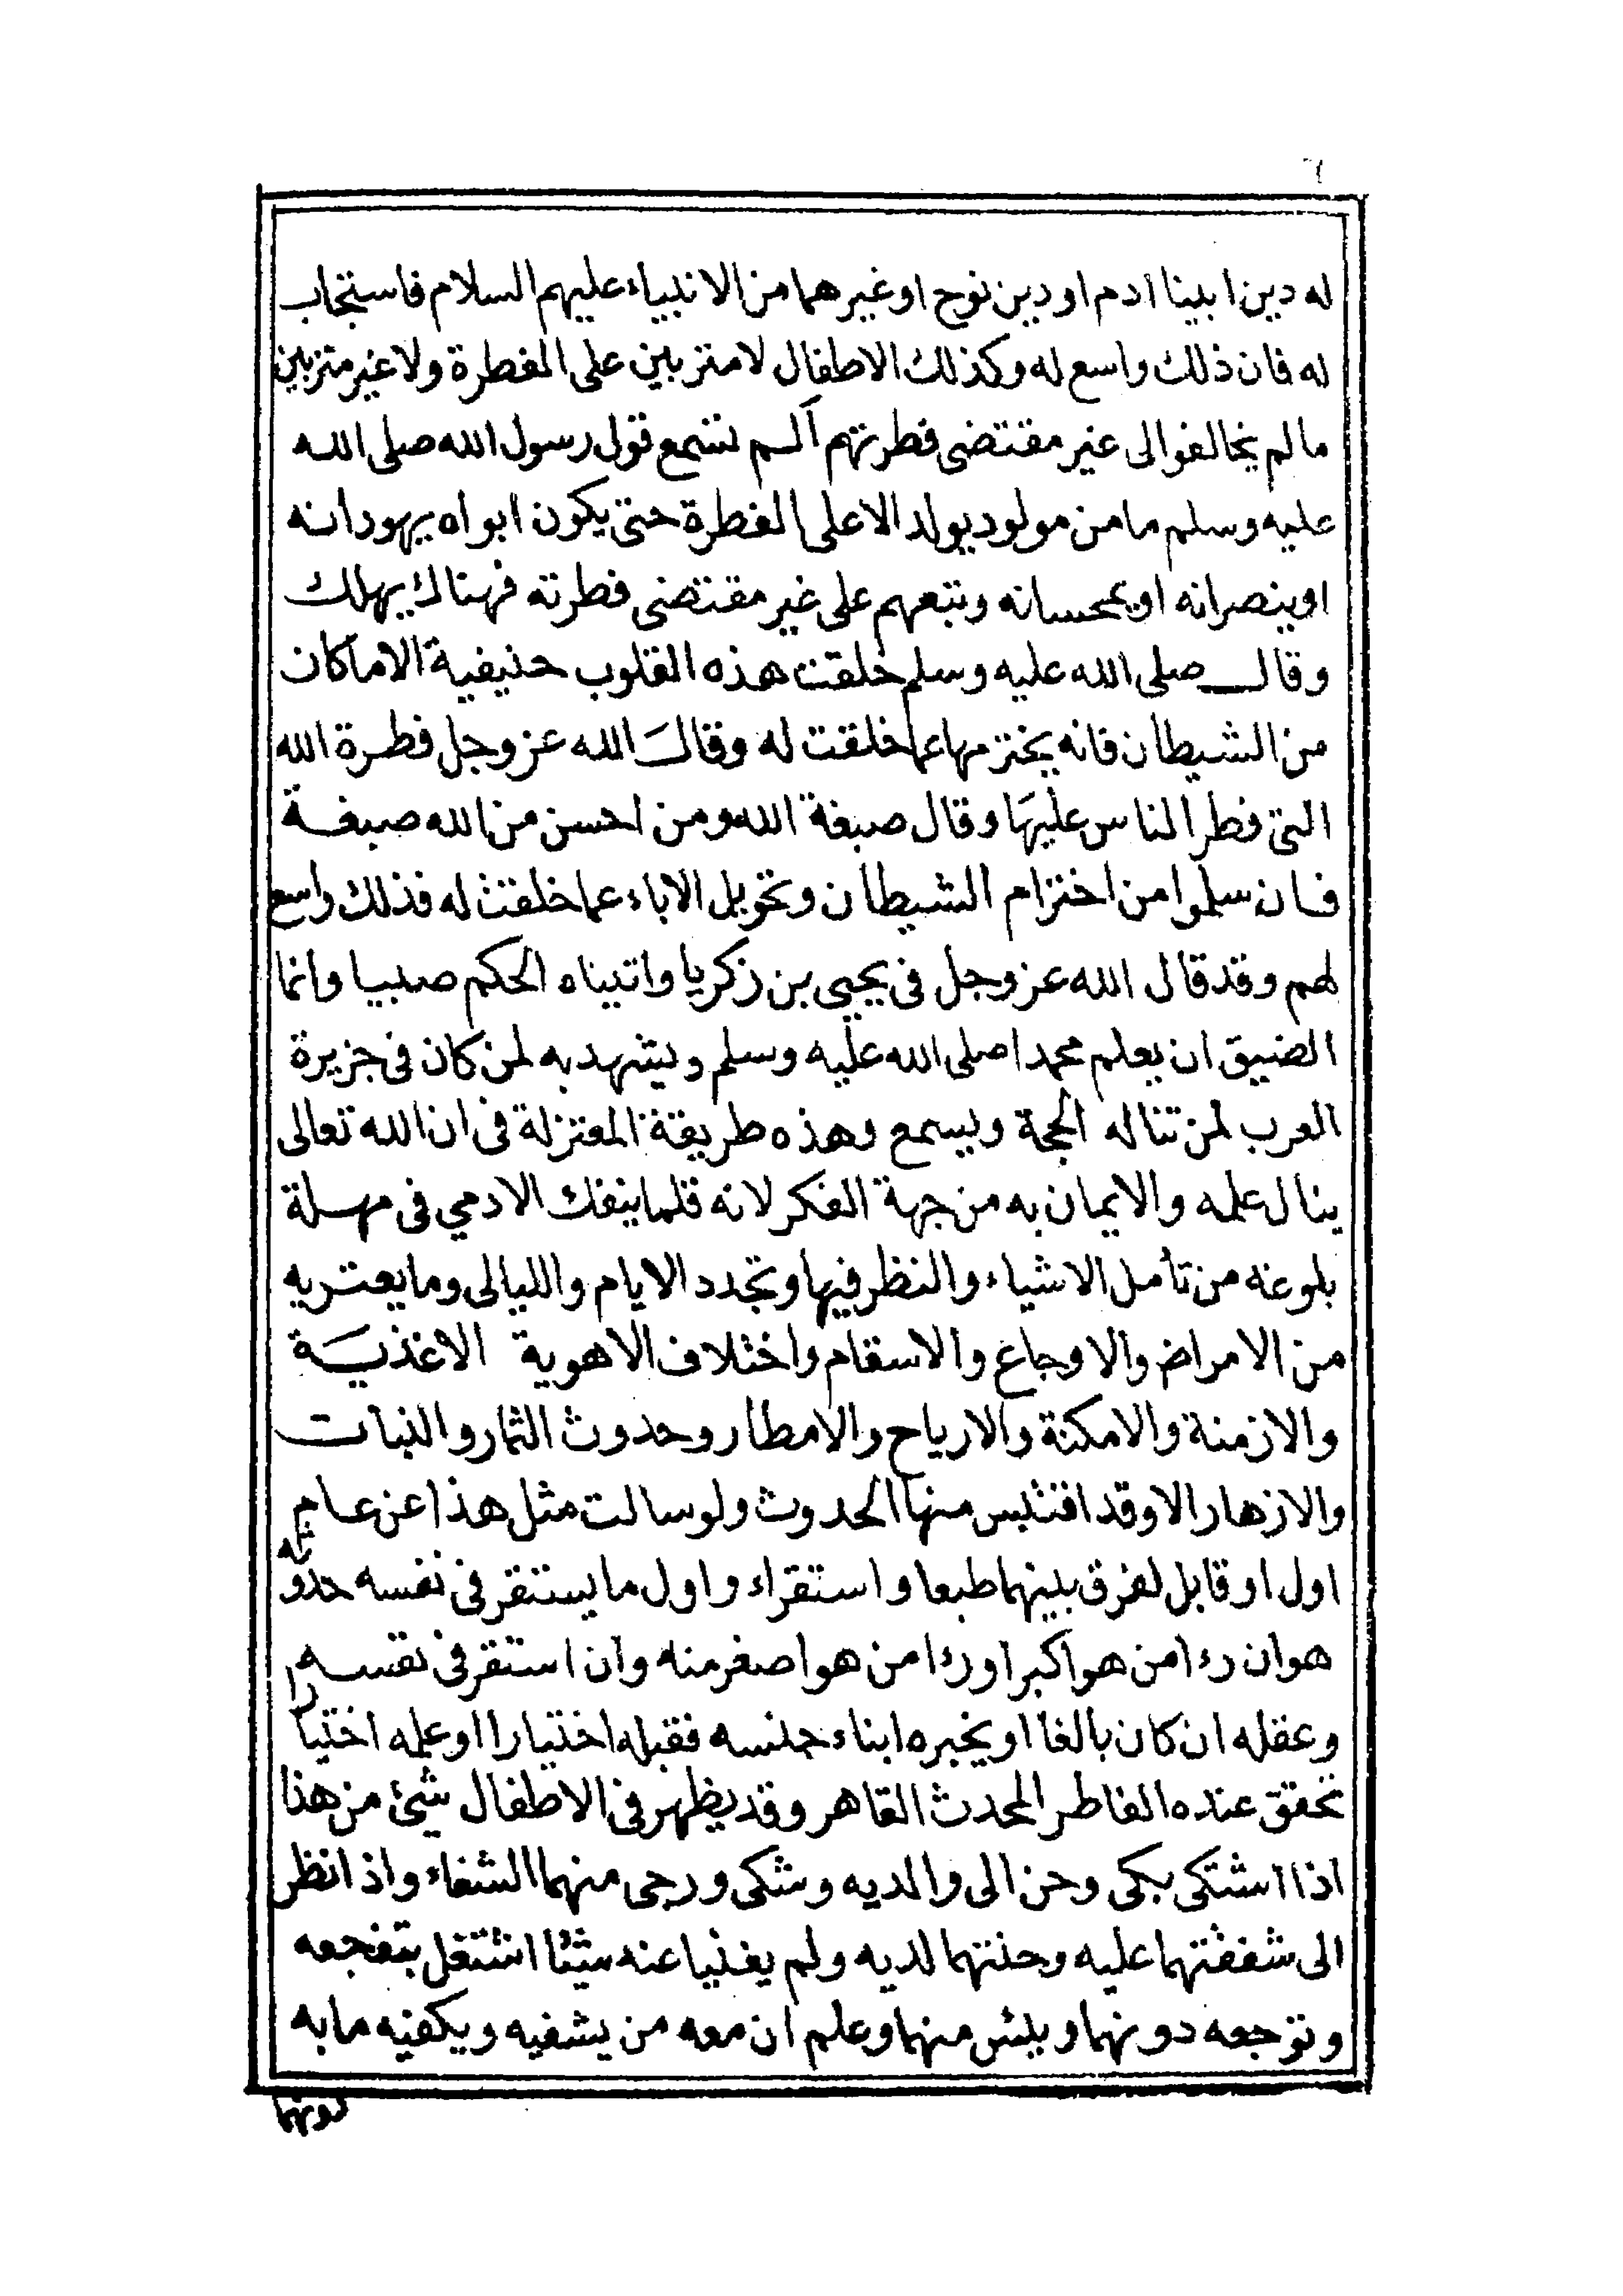 ٦
له دين ابينا ادم او دين نوح او غيرهما من الانبياء عليهم السلام فاستجاب
له فان ذلك واسع له وكذلك الاطفال لا متزببين على الفطرة ولا غير متزببين
ما لم يخالفوا الى غير مقتضى فطرتهم الـم تسمع قول رسول الله صلى الله
عليه وسلم ما من مولود يولد الا على الفطرة حتى يكون ابواه يهودانه
او ينصرانه او يمجسانه ويتبعهم على غير مقتضى فطرته فهناك يهلك
وقال صلى الله عليه وسلم خلقت هذه القلوب حنيفية الا ماكان
من الشيطان فانه يخترمها عما خلقت له وقال الله عز وجل فطرة الله
التى فطر الناس عليها وقال صبغة الله ومن احسن من الله صبغة
فان سلموا من اختزام الشيطان وتحويل الاباء عما خلقت له فذلك واسع
لهم وقد قال الله عز وجل فى يحيى بن زكريا واتيناه الحكم صبيا وانما
الضيق ان يعلم محمدا صلى الله عليه وسلم ويشهد به لمن كان فى جزيرة
العرب لمن تناله الحجة ويسمع وهذه طريقة المعتزلة فى ان الله تعالى
ينال علمه والايمان به من جهة الفكر لانه قلما ينفك الادمي فى مهلة
بلوغه من تأمل الاشياء والنظر فيها وتجدد الايام والليالى وما يعتريه
من الامراض والاوجاع والاسقام واختلاف الاهوية الاغذية
والازمنة والامكنة والارياح والامطار وحدوث الثمار والنبات
والازهار الا وقد اقتبس منها الحدوث ولو سالت مثل هذا عن عام
اول او قابل لفرق بينهما طبعا واستقراء واول ما يستقر فى نفسه حدوثه
هو ان رءا من هو اكبر او رءا من هو اصغر منه وان استقر فى نفسه
وعقله ان كان بالغا او يخبره ابناء جنسه فقبله اختيارا او علمه اختيارا
تحقق عنده الفاطر المحدث القاهر وقد يظهر فى الاطفال شئ من هذا
اذا اشتكى بكى وحن الى والديه وشكى ورجى منهما الشفاء واذا نظر
الى شفقتهما عليه وحنتهما لديه ولم يغنيا عنه شيئا اشتغل بتفجعه
وتوجعه دونهما ويئس منهما وعلم ان معه من يشفيه ويكفيه ما به
دونهما